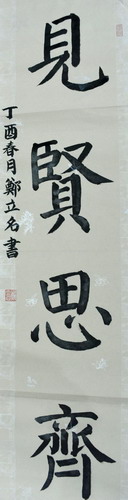 見賢思齊
丁酉春月鄭立名書